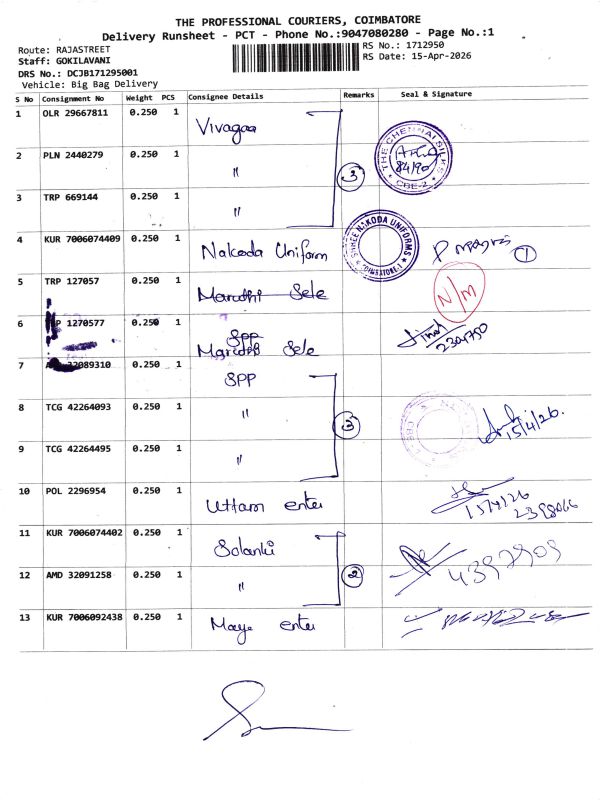 THE PROFESSIONAL COURIERS, COIMBATORE
Delivery Runsheet - PCT - Phone No.:9047080280 - Page No.:1
Route: RAJASTREET
RS No.: 1712950
Staff: GOKILAVANI
RS Date: 15-Apr-2026
DRS No.: DCJB171295001
Vehicle: Big Bag Delivery
S No Consignment No Weight PCS Consignee Details Remarks Seal & Signature
1 OLR 29667811 0.250 1 Vivagaa
THE CHENNAI SILKS
84190
CBE-2
2 PLN 2440279 0.250 1 "
3
3 TRP 669144 0.250 1 "
4 KUR 7006074409 0.250 1 Nakoda Uniform
SHREE NAKODA UNIFORMS
COIMBATORE-1
1
5 TRP 127057 0.250 1 Maruthi Sele
N/M
6 1270577 0.250 1 SPP
Maruthi Sele
2304750
7 32089310 0.250 1 SPP
8 TCG 42264093 0.250 1 "
3
15/4/26.
9 TCG 42264495 0.250 1 "
10 POL 2296954 0.250 1 Uttam enter
15/4/26
11 KUR 7006074402 0.250 1 Solanki
4397909
12 AMD 32091258 0.250 1 "
2
13 KUR 7006092438 0.250 1 Maya enter